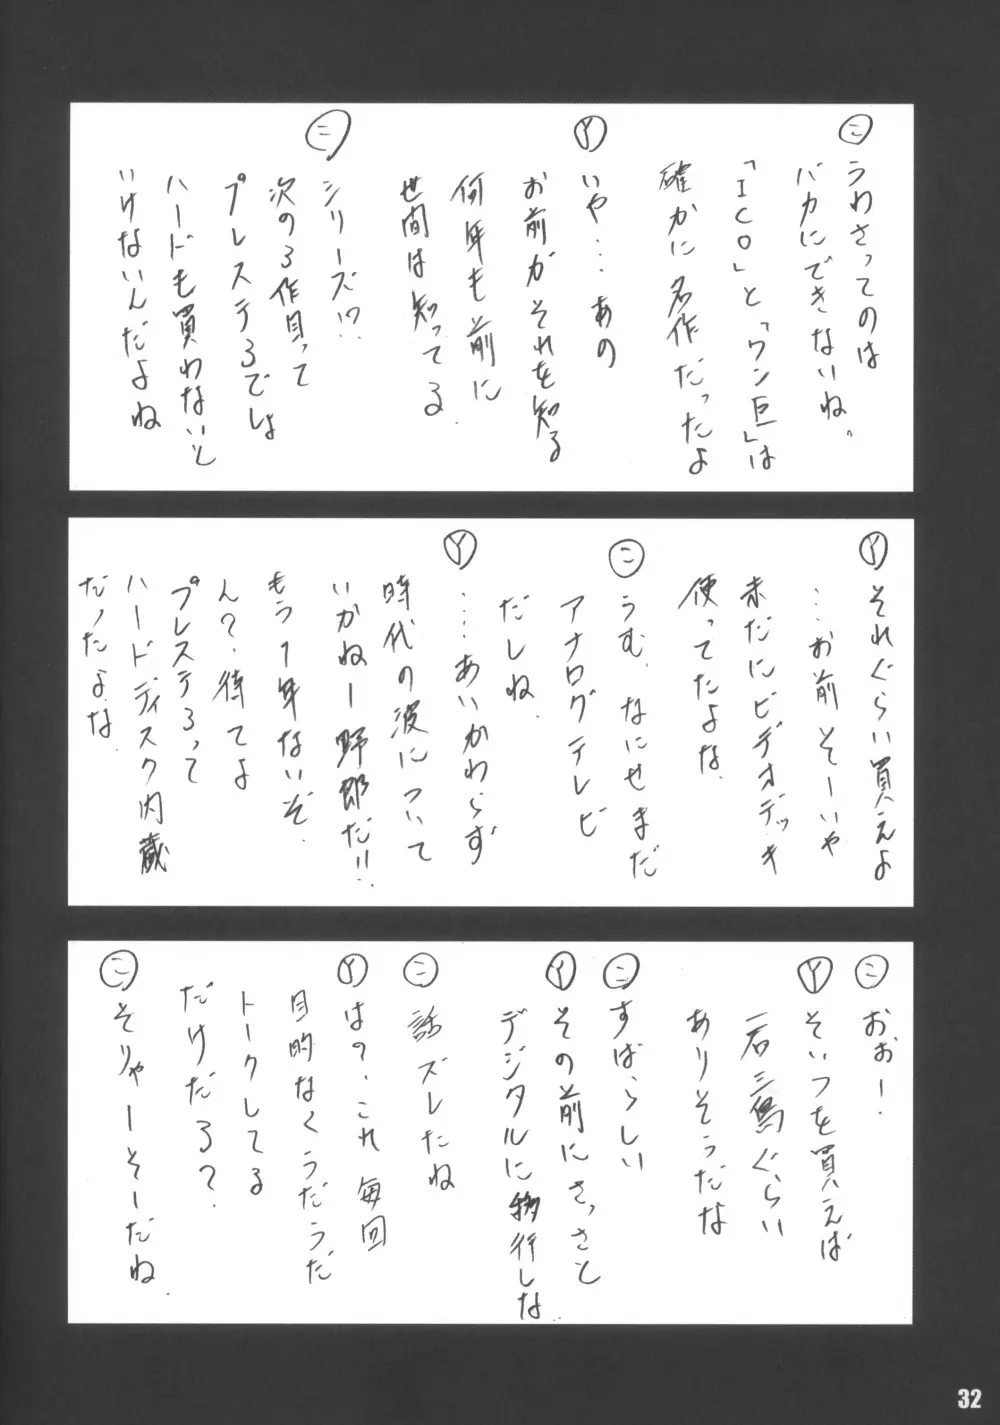 ㋙ うわさってのは
バカにできないね。
「ICO」と「ワンダ巨」は
確かに名作だったよ
Ⓨ いや…あの
お前がそれを知る
何年も前に
世間は知ってる.
㊁ シリーズ!?
次の3作目って
プレステ3でしょ
ハードも買わないと
いけないんだよね
Ⓨ それぐらい買えよ
…お前そーいや
未だにビデオデッキ
使ってたよな.
㋙ うむ、なにせまだ
アナログテレビ
だしね.
Ⓨ …あいかわらず
時代の波について
いかねー野郎だ!!
もう1年ないぞ.
ん?.待てよ
プレステ3って
ハードディスク内蔵
だったよな.
㋙ おぉー!
Ⓨ そいつを買えば
一石三鳥ぐらい
ありそうだな
㋙ すばらしい
Ⓨ その前にさっさと
デジタルに移行しな..
㋙ 話ズレたね
Ⓨ は?.これ毎回
目的なくうだうだ
トークしてる
だけだろ?.
㋙ そりゃーそーだね.
32